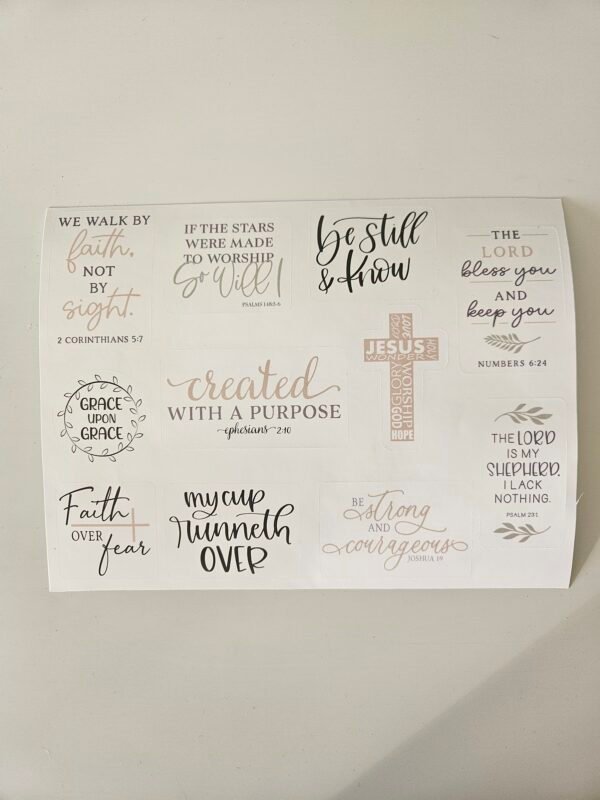 WE WALK BY
faith,
NOT
BY
sight.
2 CORINTHIANS 5:7
IF THE STARS
WERE MADE
TO WORSHIP
So Will I
be still
& know
THE
LORD
bless you
AND
keep you
NUMBERS 6:24
GRACE
UPON
GRACE
created
WITH A PURPOSE
ephesians 2:10
JESUS
WONDER
HOLY
LOVE
GLORY
WORSHIP
GOD
HOPE
THE LORD
IS MY
SHEPHERD,
I LACK
NOTHING.
PSALM 23:1
Faith
OVER
fear
my cup
runneth
OVER
BE
strong
AND
courageous
JOSHUA 1:9